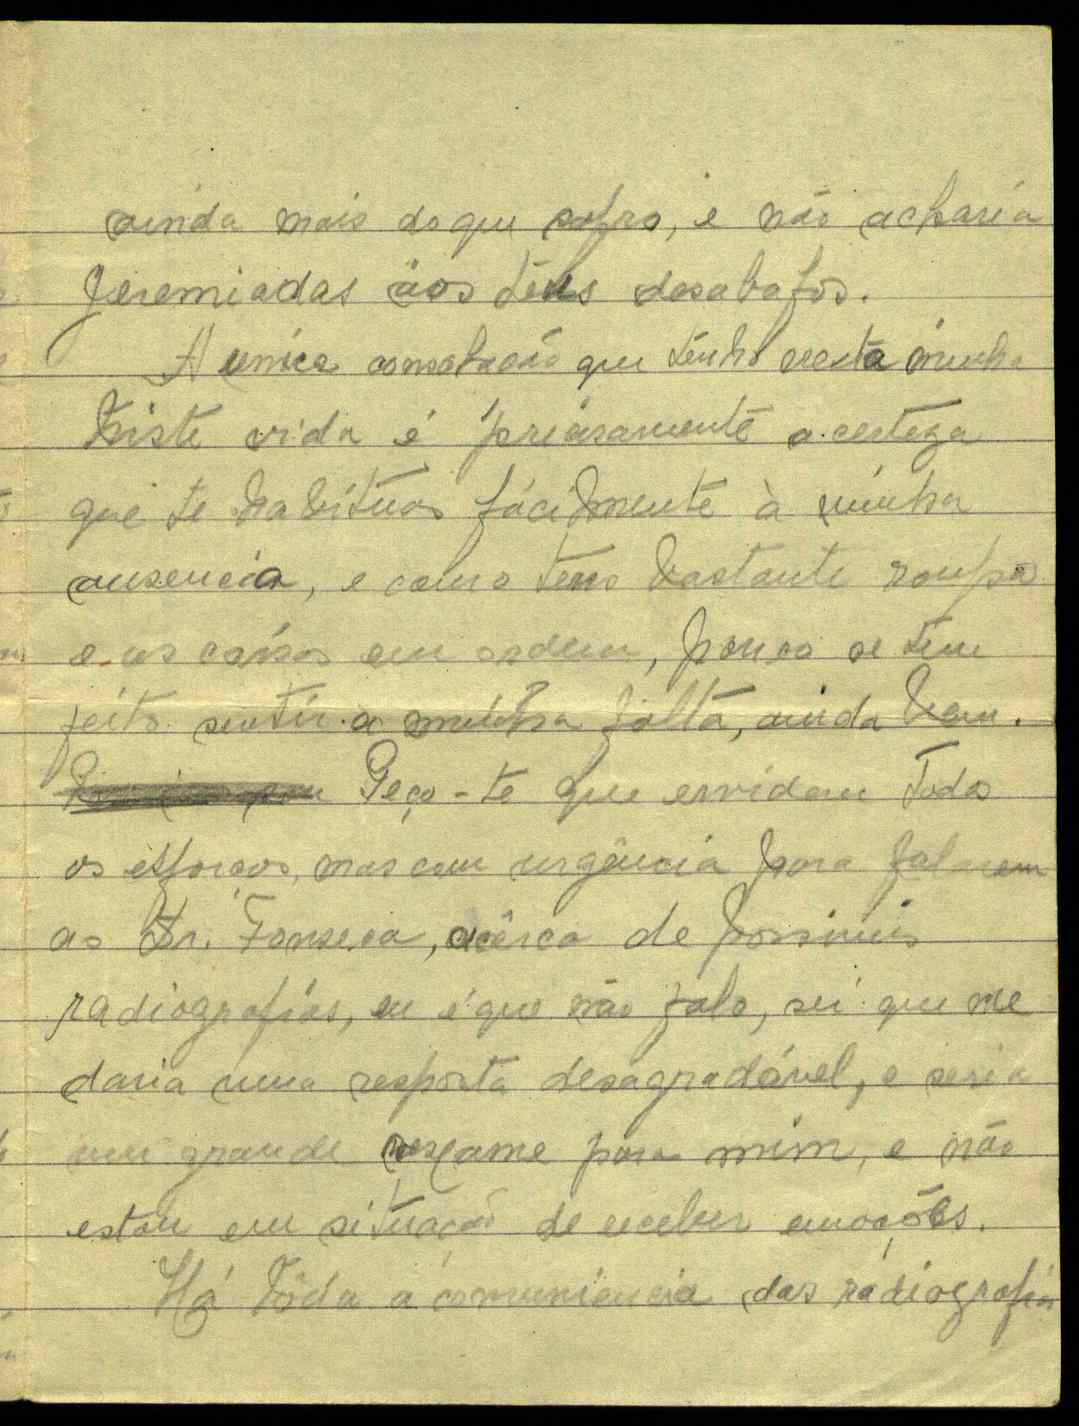 ainda mais do que sofro, e não acharia
Jeremiadas áos têus desabafos.
A unica consolação que tenho nesta minha
triste vida é precisamente a certeza
que te habituas fácilmente à minha
ausencia, e como tens bastante roupa
e as coisas em ordem, pouco se tem
feito sentir a minha falta, ainda bem.
Peço-te que envidem todos
os esforços, mas com urgência para falarem
ao Dr. Fonseca, acêrca de possiveis
radiografias, eu é que não falo, sei que me
daria uma resposta desagradável, e seria
um grande vexame para mim, e não
estou em situação de receber emoções.
Há tôda a conveniencia das radiografias